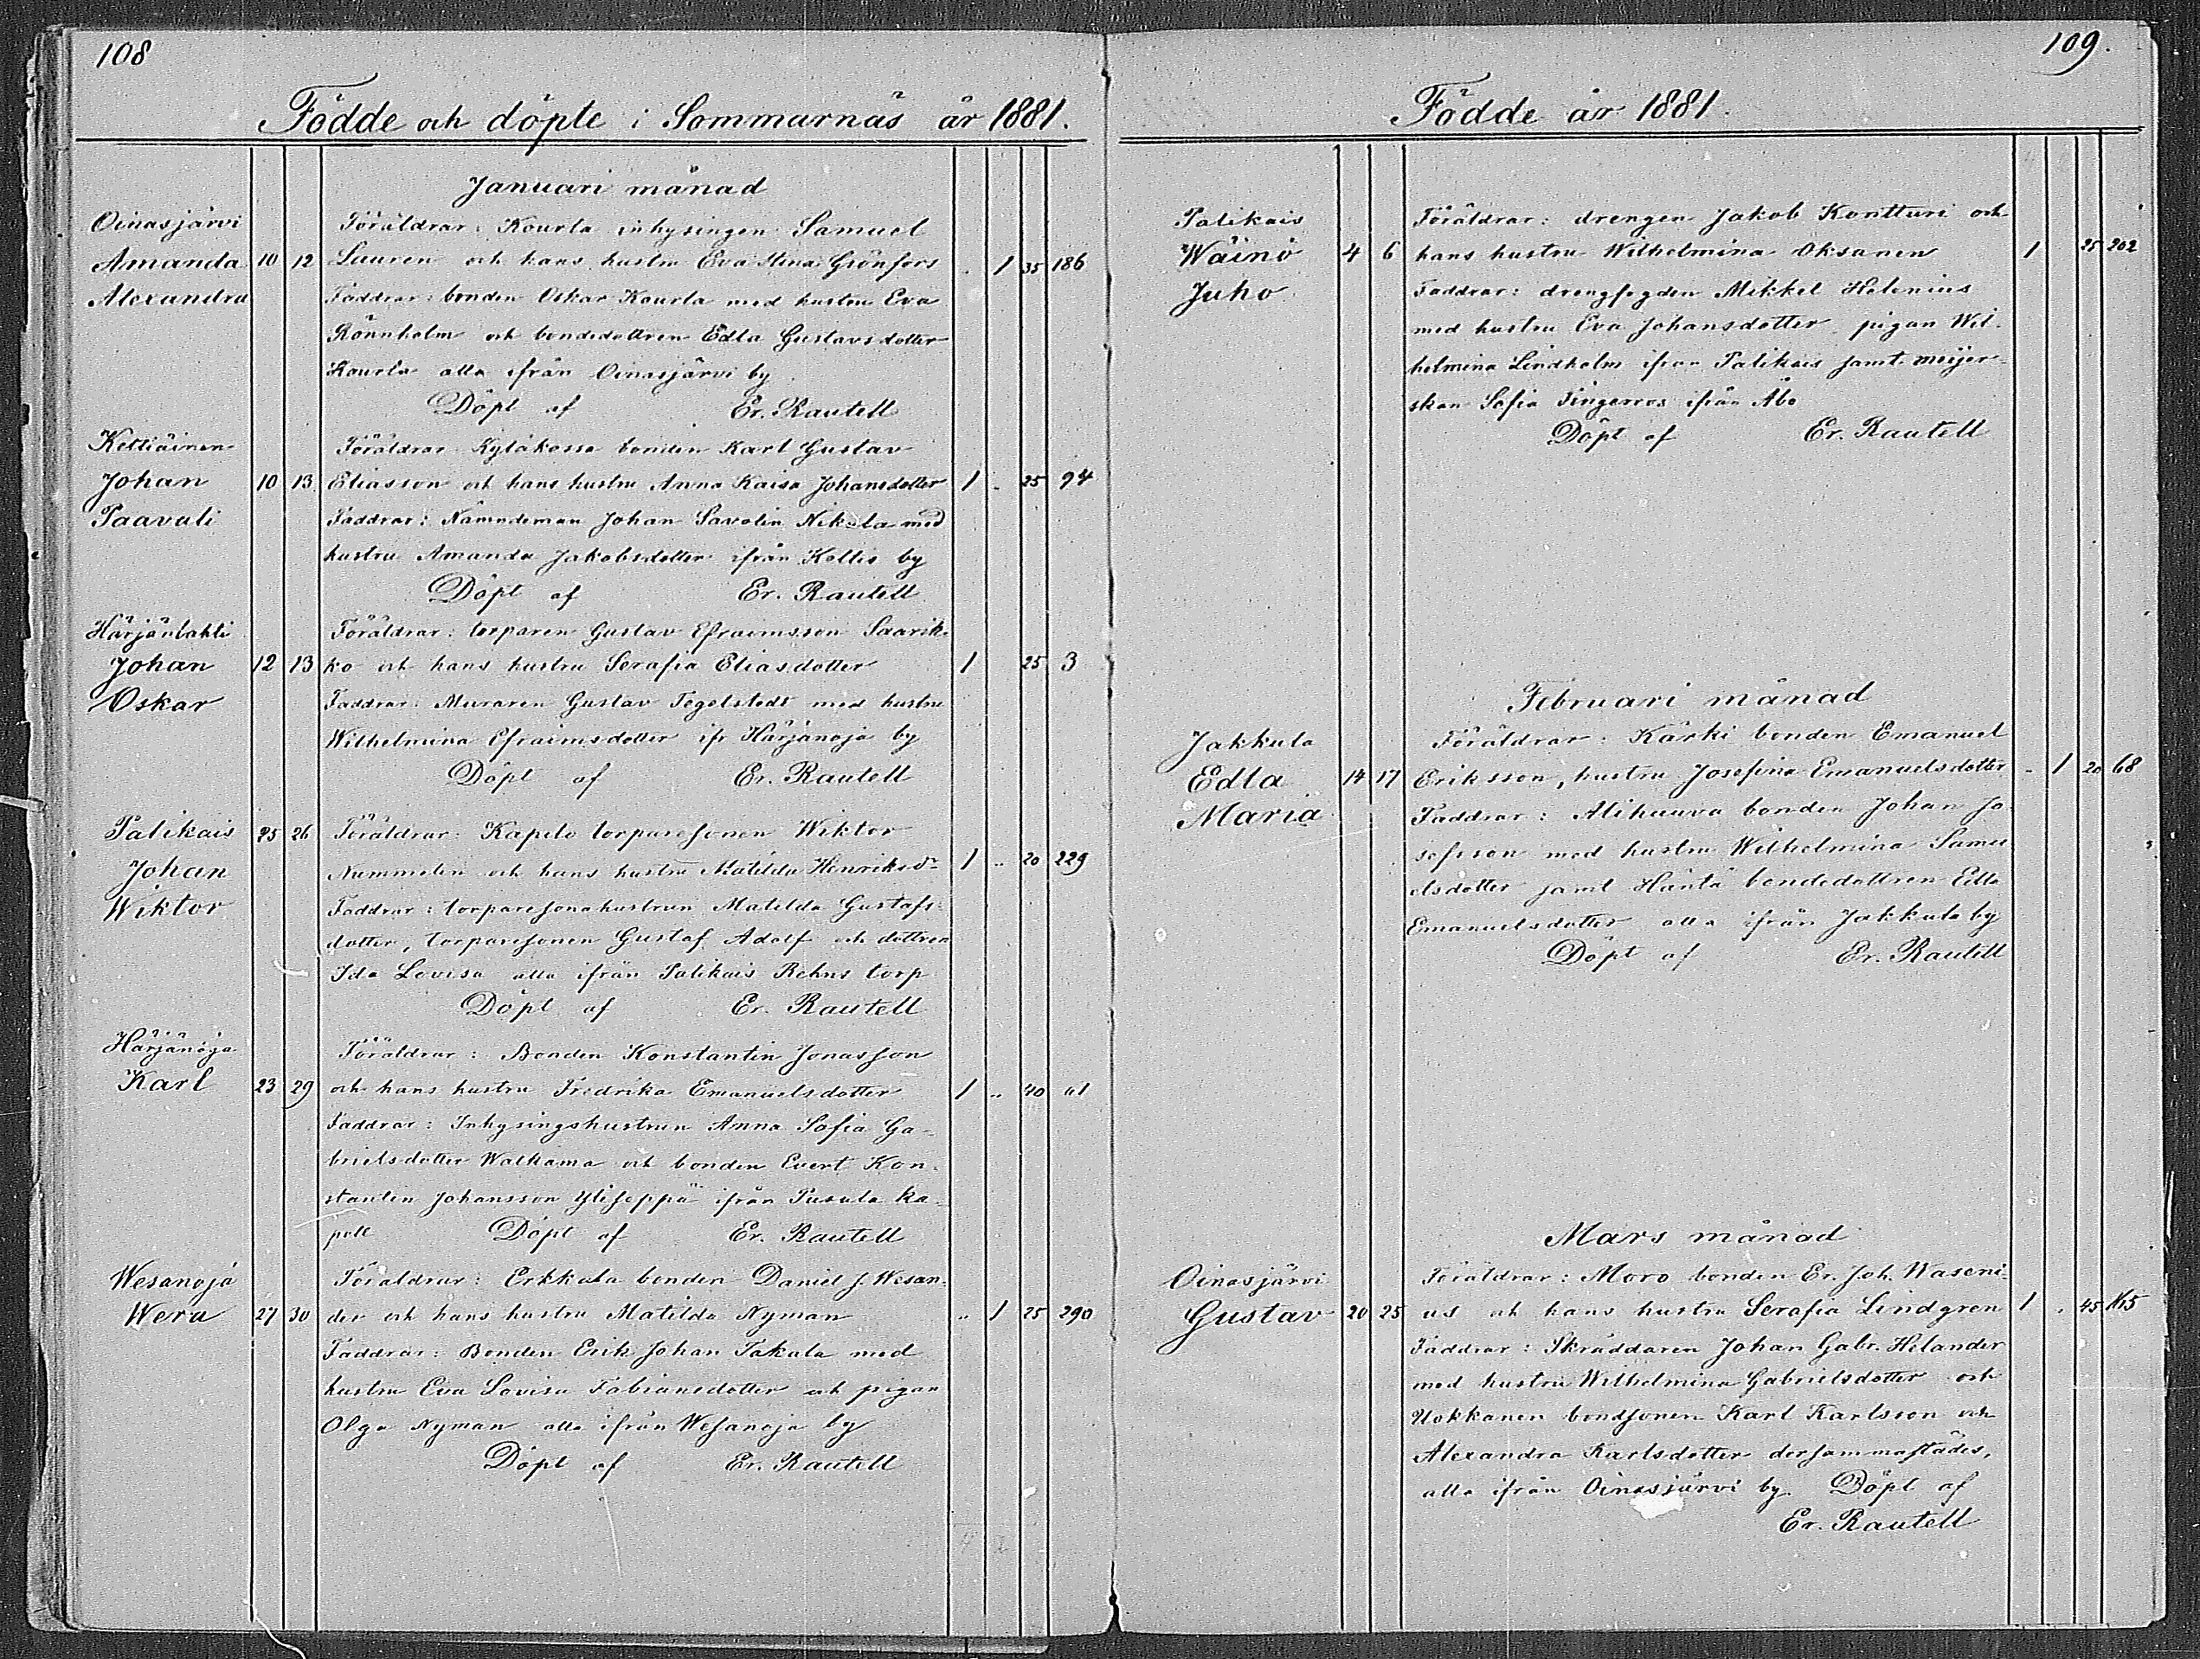 108
Födde och döpte i Sommarnäs år 1881.
Januari månad
Oinasjärvi Föräldrar: Kourla inhysingen Samuel
Amanda 10 12 Lauren och hans hustru Eva Stina Grönfors . 1 35 186
Alexandra Faddrar: bonden Oskar Kourla med hustru Eva
Rönnholm och bondedottren Edla Gustavsdotter
Kourla alla ifrån Oinasjärvi by
Döpt af Er. Rautell
Kettiäinen Föräldrar Kyläkossa bonden Karl Gustav
Johan 10 13 Eliasson och hans hustru Anna Kaisa Johansdotter 1 . 25 94
Paavali Faddrar: Nämndeman Johan Savolin Nikula med
hustru Amanda Jakobsdotter ifrån Kettis by
Döpt af Er. Rautell
Härjänlahti Föräldrar: torparen Gustav Efraimsson Saarik-
Johan 12 13 ko och hans hustru Serafia Eliasdotter 1 25 3
Oskar Faddrar: Muraren Gustav Tegelstedt med hustru
Wilhelmina Efraimsdotter ifr Härjänoja by
Döpt af Er. Rautell
Palikais 25 26 Föräldrar: Kapilo torparesonen Wiktor
Johan Nummelin och hans hustru Matilda Henriksdr 1 .. 20 229
Wiktor Faddrar: torparesonahustrun Matilda Gustafs-
dotter, torparesonen Gustaf Adolf och dottren
Ida Lovisa alla ifrån Palikais Rehns torp
Döpt af Er. Rautell
Härjänoja Föräldrar: Bonden Konstantin Jonasson
Karl 23 29 och hans hustru Fredrika Emanuelsdotter 1 .. 40 61
Faddrar: Inhysingshustrun Anna Sofia Ga-
brielsdotter Walkama och bonden Evert Kon-
stantin Johansson Yliseppä ifrån Pusula ka-
pell Döpt af Er. Rautell
Wesanoja Föräldrar: Erkkala bonden Daniel J. Wesan-
Wera 27 30 der och hans hustru Matilda Nyman .. 1 25 290
Faddrar: Bonden Erik Johan Takala med
hustru Eva Lovisa Fabiansdotter och pigan
Olga Nyman alla ifrån Wesanoja by
Döpt af Er. Rautell
109.
Födde år 1881.
Palikais Föräldrar: drengen Jakob Kontturi och
Wäinö 4 6 hans hustru Wilhelmina Oksanen 1 25 202
Juho Faddrar: drengfogden Mikkel Helenius
med hustru Eva Johansdotter, pigan Wil-
helmina Lindholm ifrån Palikais samt meijer-
skan Sofia Fingerroos ifrån Åbo
Döpt af Er. Rautell
Februari månad
Jakkula Föräldrar: Kärki bonden Emanuel
Edla 14 17 Eriksson, hustru Josefina Emanuelsdotter . 1 20 68
Maria Faddrar: Alihaava bonden Johan Jo-
sefsson med hustru Wilhelmina Samu
elsdotter samt Häntä bondedottren Edla
Emanuelsdotter alla ifrån Jakkula by
Döpt af Er. Rautell
Mars månad
Oinasjärvi Föräldrar: Moro bonden Er. Joh. Waseni-
Gustav 20 25 us och hans hustru Serafia Lindgren 1 . 45
Faddrar: Skräddaren Johan Gabr. Helander
med hustru Wilhelmina Gabrielsdotter och
Uokkanen bondsonen Karl Karlsson och
Alexandra Karlsdotter dersammastädes,
alla ifrån Oinasjärvi by. Döpt af
Er. Rautell